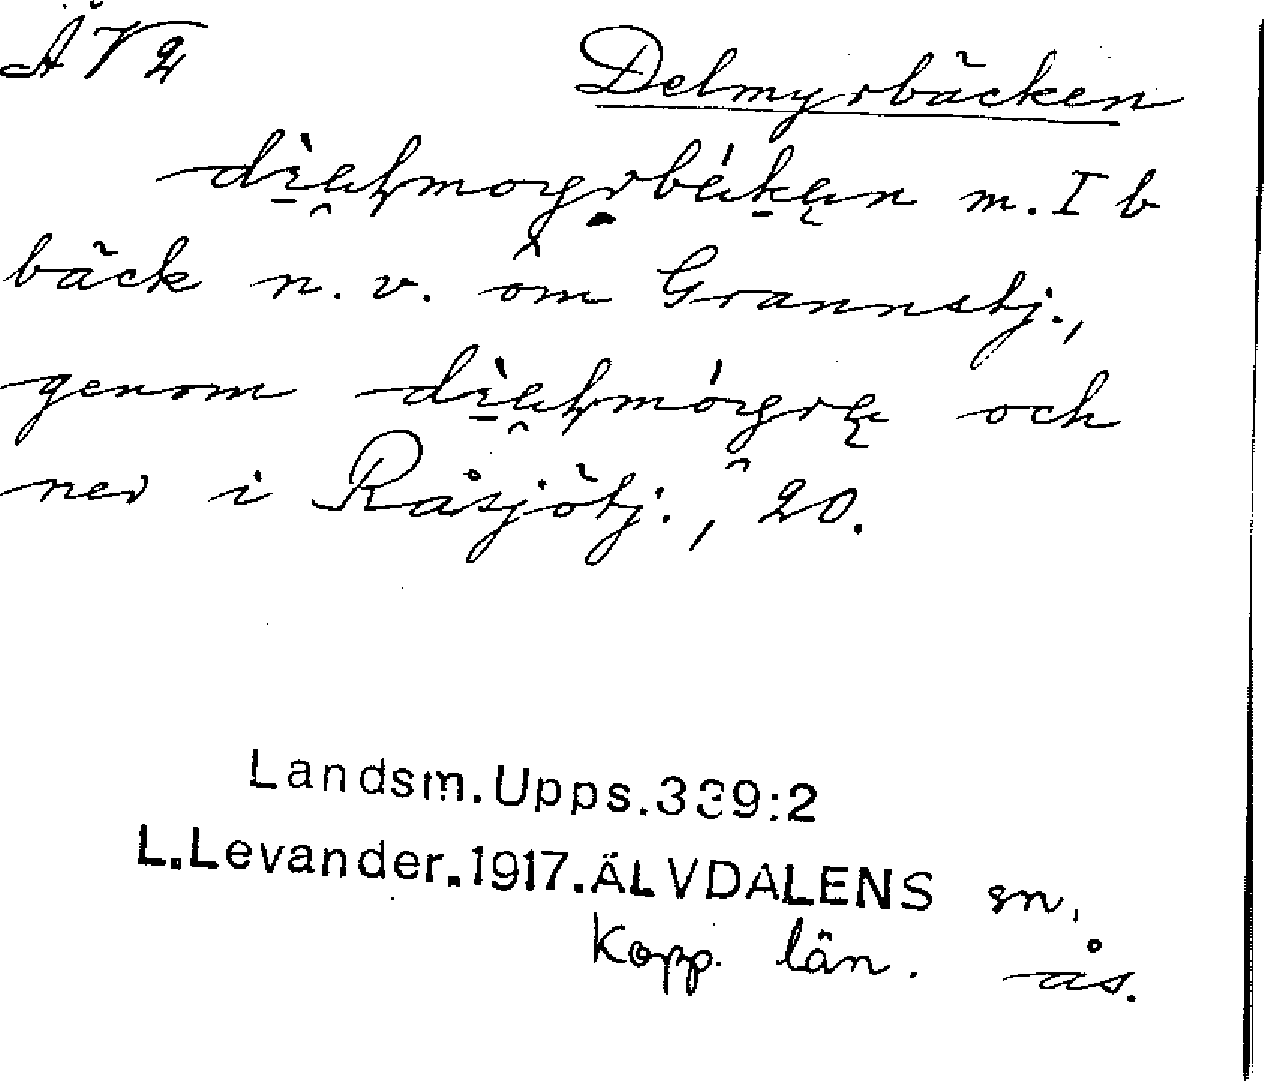 ÅV2
Delmyrbäcken
m. I b
bäck n. v. om Grannstj.,
genom och
ned i Råsjötj., 20.
Landsm.Upps.339:2
L.Levander.1917.ÄLVDALENS sn.
Kopp. län. ås.